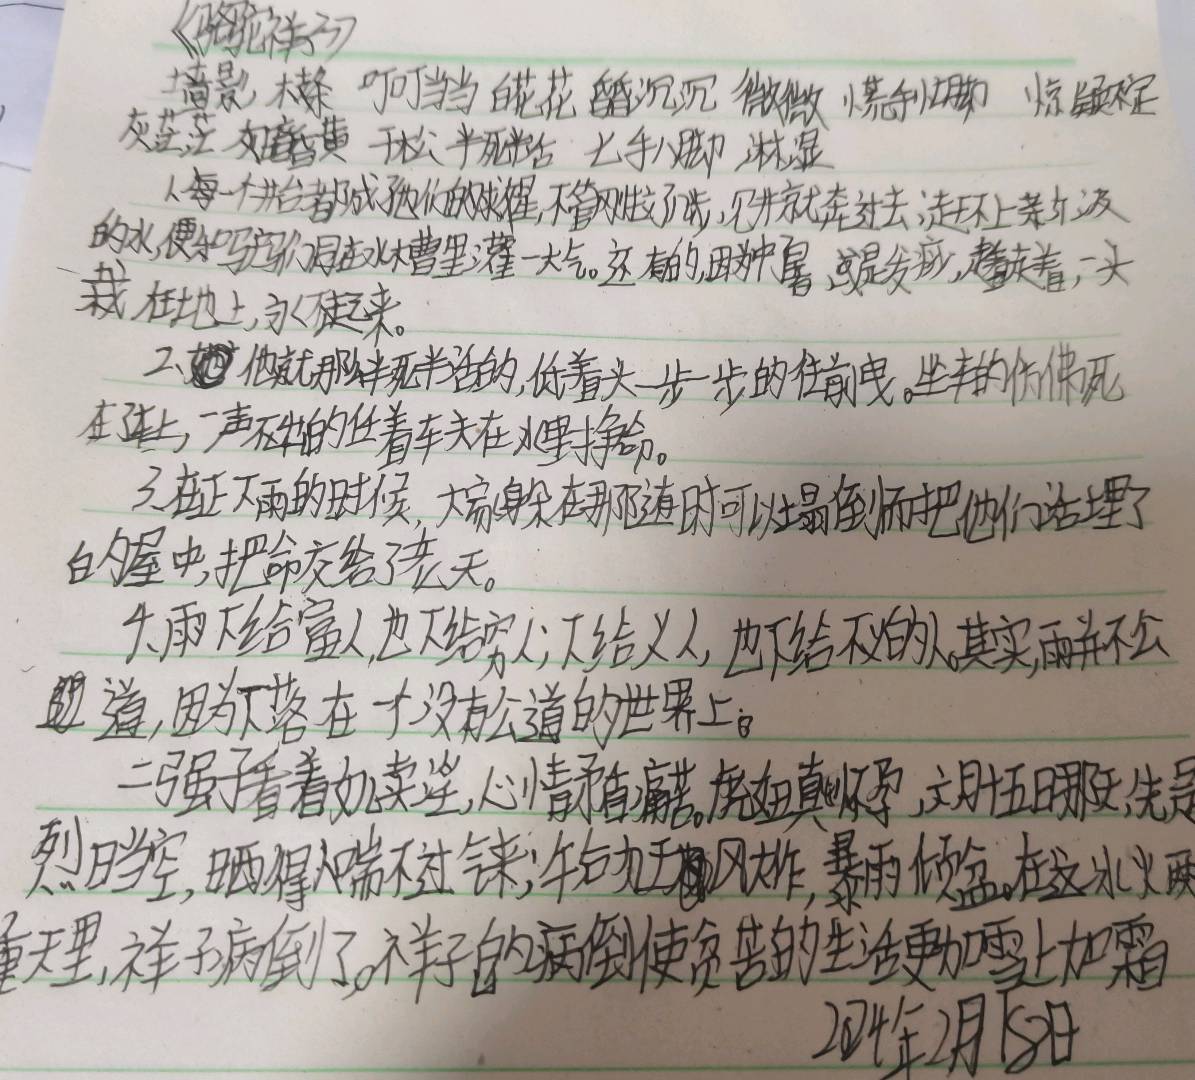 《骆驼祥子》
情景, 大碌 叮叮当当 白花花 昏沉沉 微微 慌手忙脚 惊疑不定
灰茫茫 如昏黄 干松 半死半活 七手八脚 淋湿
1、每一个井台都成了他们的救星,不管刚拉了几步,见井就奔过去,赶不上新汲
的水,便和驴马们同在水槽里灌一大气。还有的,因为中暑,或是发痧,走着走着,一头
栽在地上,永不起来。
2、他就那么半死半活的,低着头一步一步的往前曳。坐车的仿佛死
在车上,一声不出的任着车夫在水里挣命。
3、在正下雨的时候,大家躲在那随时可以塌倒而把他们活埋了
的屋中,把命交给了老天。
4、雨下给富人,也下给穷人;下给义人,也下给不义的人。其实,雨并不公
道,因为下落在一个没有公道的世界上。
二强子看着女儿卖淫,心情矛盾痛苦。虎妞真怀孕,六月十五日那天,先是
烈日当空,晒得人喘不过气来;午后狂风大作,暴雨倾盆。在这水火两
重天里,祥子病倒了。祥子的病倒使贫苦的生活更加雪上加霜
2024年2月18日